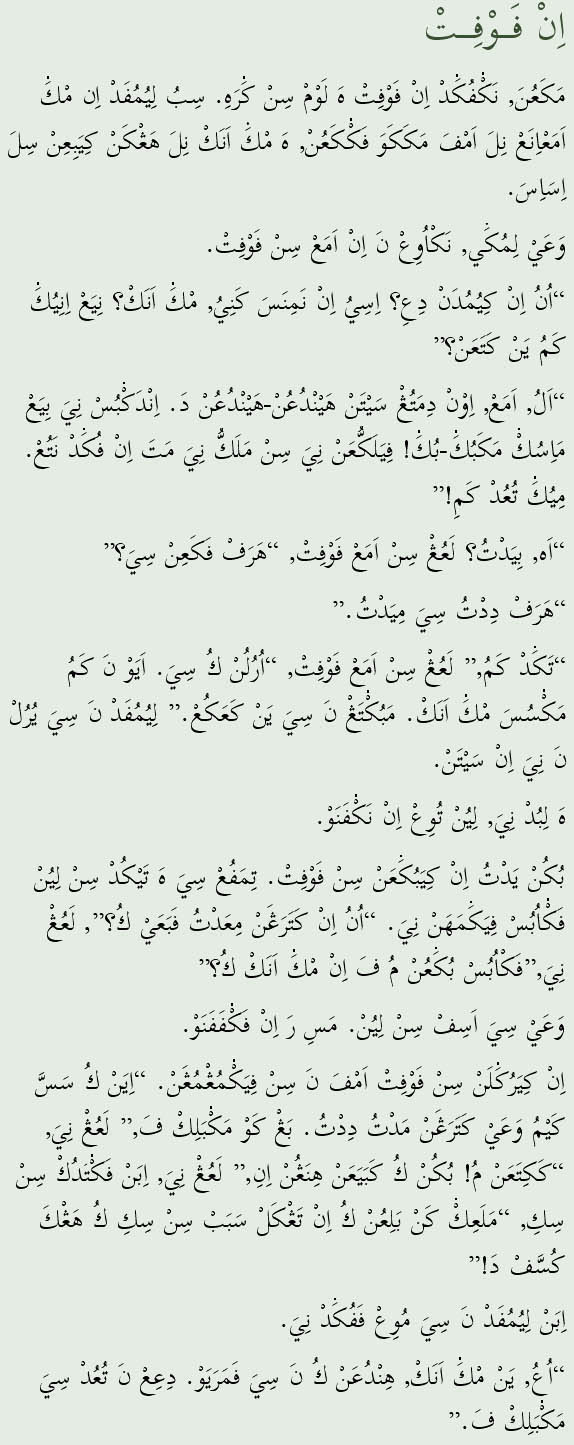 اِنْ فَـوْفِـتْ
مَكَعُنَ, نَكْڤُكَدْ اِنْ فَوْفِتْ هَ لَوْمْ سِنْ كَرَهِ. سِبُ لِيُمُفَدْ اِن مْكَ
اَمَعْاِنَعْ نِلَ اَمْفَ مَكَكَوَ فَكْكَعُنْ, هَ مْكَ اَنَكْ نِلَ هَڠْكَنْ كِيَبِعِنْ سِلَ
اِسَاِسَ.
وَعَيْ لِمُكَي, نَكْاُوِعْ نَ اِنْ اَمَعْ سِنْ فَوْفِتْ.
“اُنُ اِنْ كِيُمُدَنْ دِعِ؟ اِسِيُ اِنْ نَمِنَسَ كَنِيُ, مْكَ اَنَكْ؟ نِيَعْ اِنِيُكَ
كَمُ يَنْ كَتَعَنْ؟”
“اَلُ, اَمَعْ, اِوْنْ دِمَتُڠْ سَيْتَنْ هَيْنْدُعُنْ-هَيْنْدُعُنْ دَ. اِنْدَكْبُسْ نِيَ بِيَعْ
مَاِسُكْ مَكَبُكَ-بُكَ! فِيَلَكُّعَنْ نِيَ سِنْ مَلَكُّ نِيَ مَتَ اِنْ فُكَدْ نَتُعْ.
مِيُكَ تُعُدْ كَمِ!”
“اَه, بِيَدْتُ؟ لَعُڠْ سِنْ اَمَعْ فَوْفِتْ, “هَرَفْ فَكَعِنْ سِيَ؟”
“هَرَفْ دِدْتُ سِيَ مِيَدْتُ.”
“تَكَدْ كَمُ,” لَعُڠْ سِنْ اَمَعْ فَوْفِتْ, “اُرُلُنْ كُ سِيَ. اَيَوْ نَ كَمُ
مَكْسُسَ مْكَ اَنَكْ. مَبُكْتَڠْ نَ سِيَ يَنْ كَعَكُعْ.” لِيُمُفَدْ نَ سِيَ يُرُلْ
نَ نِيَ اِنْ سَيْتَنْ.
هَ لِبُدْ نِيَ, لِيُنْ تُوِعْ اِنْ نَكْفَنَوْ.
بُكُنْ يَدْتُ اِنْ كِيَبُكَعَنْ سِنْ فَوْفِتْ. تِمَفُعْ سِيَ هَ تَيْكُدْ سِنْ لِيُنْ
فَكْاُبُسْ فِيَكَمَهَنْ نِيَ. “اُنُ اِنْ كَتَرَڠَنْ مِعَدْتُ فَبَعَيْ كُ؟”, لَعُڠْ
نِيَ,”فَكْاُبُسْ بُكَعُنْ مُ فَ اِنْ مْكَ اَنَكْ كُ؟”
وَعَيْ سِيَ اَسِفْ سِنْ لِيُنْ. مَسِ رَ اِنْ فَكْفَفَنَوْ.
اِنْ كِيَرُكَلَنْ سِنْ فَوْفِتْ اَمْفَ نَ سِنْ فِيَكْمُڠْمُڠَنْ. “اِيَنْ كُ سَسَّ
كَيْمُ وَعَيْ كَتَرَڠَنْ مَدْتُ دِدْتُ. بَڠْ كَوْ مَكْبَلِكْ فَ,” لَعُڠْ نِيَ,
“كَكِتَعَنْ مُ! بُكُنْ كُ كَبَيَعَنْ هِنَڠُنْ اِنِ,” لَعُڠْ نِيَ, اِبَنْ فَكْتَدُكْ سِنْ
سِكِ, “مَلَعِكْ كَنْ بَلِعُنْ كُ اِنْ تَڠْكَلْ سَبَبْ سِنْ سِكِ كُ هَڠْكَ
كُسَّفْ دَ!”
اِبَنْ لِيُمُفَدْ نَ سِيَ مُوِعْ فَفُكَدْ نِيَ.
“اُعُ, يَنْ مْكَ اَنَكْ, هِنْدُعَنْ كُ نَ سِيَ فَمَرَيَوْ. دِعِعْ نَ تُعُدْ سِيَ
مَكْبَلِكْ فَ.”